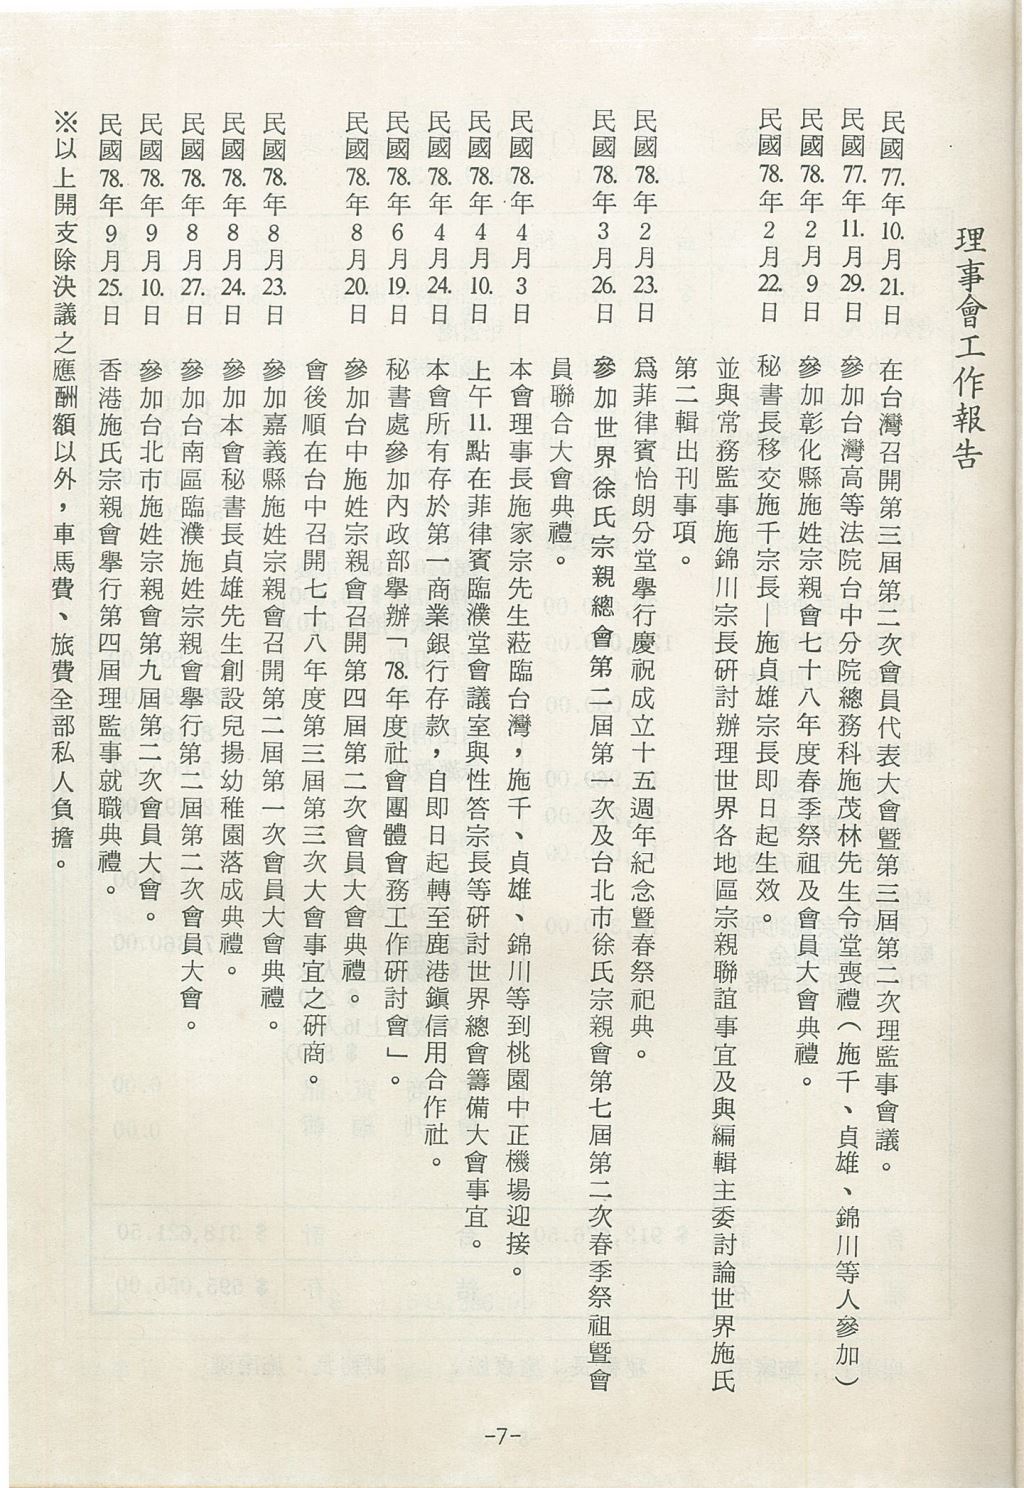 理事會工作報告
民國77.年10.月21.日　在台灣召開第三屆第二次會員代表大會暨第三屆第二次理監事會議。
民國77.年11.月29.日　參加台灣高等法院台中分院總務科施茂林先生令堂喪禮（施千、貞雄、錦川等人參加）
民國78.年2月9日　參加彰化縣施姓宗親會七十八年度春季祭祖及會員大會典禮。
民國78.年2月22.日　秘書長移交施千宗長—施貞雄宗長即日起生效。
並與常務監事施錦川宗長研討辦理世界各地區宗親聯誼事宜及與編輯主委討論世界施氏
第二輯出刊事項。
民國78.年2月23.日　爲菲律賓怡朗分堂舉行慶祝成立十五週年紀念暨春祭祀典。
民國78.年3月26.日　參加世界徐氏宗親總會第二屆第一次及台北市徐氏宗親會第七屆第二次春季祭祖暨會
員聯合大會典禮。
民國78.年4月3日　本會理事長施家宗先生蒞臨台灣，施千、貞雄、錦川等到桃園中正機場迎接。
民國78.年4月10.日　上午11.點在菲律賓臨濮堂會議室與性答宗長等研討世界總會籌備大會事宜。
民國78.年4月24.日　本會所有存於第一商業銀行存款，自即日起轉至鹿港鎭信用合作社。
民國78.年6月19.日　秘書處參加內政部舉辦「78.年度社會團體會務工作研討會」。
民國78.年8月20.日　參加台中施姓宗親會召開第四屆第二次會員大會典禮。
會後順在台中召開七十八年度第三屆第三次大會事宜之研商。
民國78.年8月23.日　參加嘉義縣施姓宗親會召開第二屆第一次會員大會典禮。
民國78.年8月24.日　參加本會秘書長貞雄先生創設兒揚幼稚園落成典禮。
民國78.年8月27.日　參加台南區臨濮施姓宗親會舉行第二屆第二次會員大會。
民國78.年9月10.日　參加台北市施姓宗親會第九屆第二次會員大會。
民國78.年9月25.日　香港施氏宗親會舉行第四屆理監事就職典禮。
※以上開支除決議之應酬額以外，車馬費、旅費全部私人負擔。
-7-